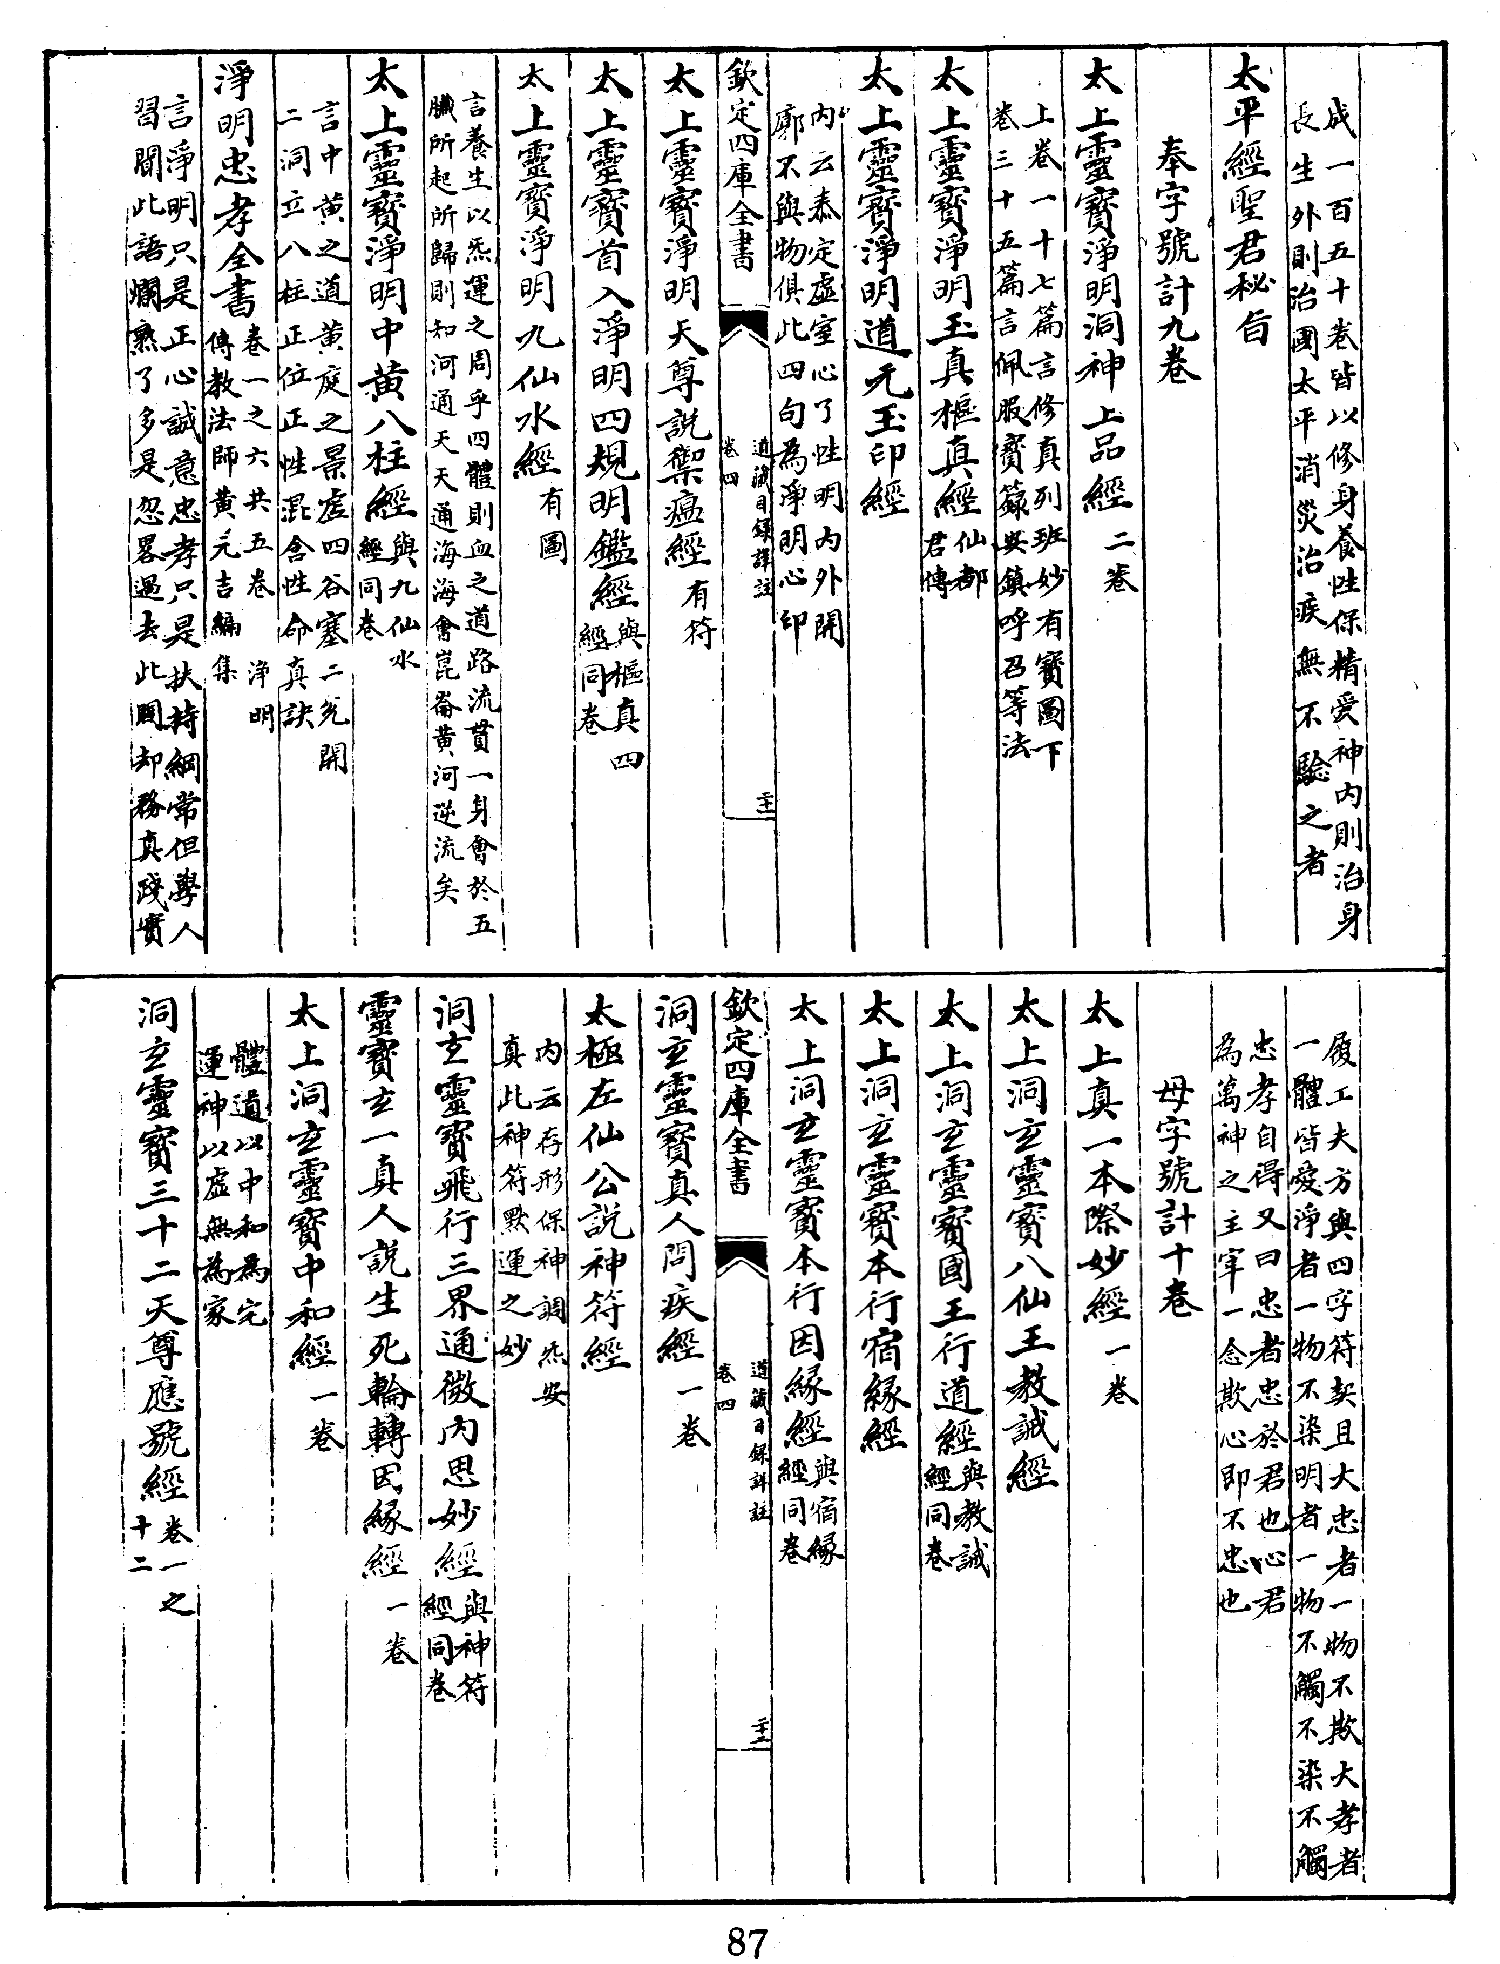 成一百五十卷皆以修身養性保精愛神內則治身
長生外則治國太平消災治疾無不驗之者
太平經聖君秘旨
奉字號計九卷
太上靈寶淨明洞神上品經二卷
上卷一十七篇言修真列班妙有寶圖下
卷三十五篇言佩服寶籙安鎮呼召等法
太上靈寶淨明玉真樞真經仙都
君傳
太上靈寶淨明道元玉印經
內云泰定虛室心了性明內外開
廓不與物俱此四句為淨明心印
欽定四庫全書
道藏目錄詳註
卷四
二十一
太上靈寶淨明天尊説禦瘟經有符
太上靈寶首入淨明四規明鑑經與樞真四
經同卷
太上靈寶淨明九仙水經有圖
言養生以炁運之周乎四體則血之道路流貫一身會於五
臟所起所歸則知河通天天通海海會崑崙黃河逆流矣
太上靈寶淨明中黃八柱經與九仙水
經同卷
言中黃之道黃庭之景虛四谷塞二兊開
二洞立八柱正位正性混含性命真訣
淨明忠孝全書卷一之六共五卷 淨明
傳教法師黃元吉編集
言淨明只是正心誠意忠孝只是扶持綱常但學人
習聞此語爛熟了多是忽畧過去此間却務真踐實
履工夫方與四字符契且大忠者一物不欺大孝者
一體皆愛淨者一物不染明者一物不觸不染不觸
忠孝自得又曰忠者忠於君也心君
為萬神之主宰一念欺心即不忠也
母字號計十卷
太上真一本際妙經一卷
太上洞玄靈寶八仙王教誡經
太上洞玄靈寶國王行道經與教誡
經同卷
太上洞玄靈寶本行宿緣經
太上洞玄靈寶本行因緣經與宿緣
經同卷
欽定四庫全書
道藏目錄詳註
卷四
二十二
洞玄靈寶真人問疾經一卷
太極左仙公説神符經
內云存形保神調炁安
真此神符默運之妙
洞玄靈寶飛行三界通微內思妙經與神符
經同卷
靈寶玄一真人説生死輪轉因緣經一卷
太上洞玄靈寶中和經一卷
體道以中和為宅
運神以虛無為家
洞玄靈寶三十二天尊應號經卷一之
十二
87